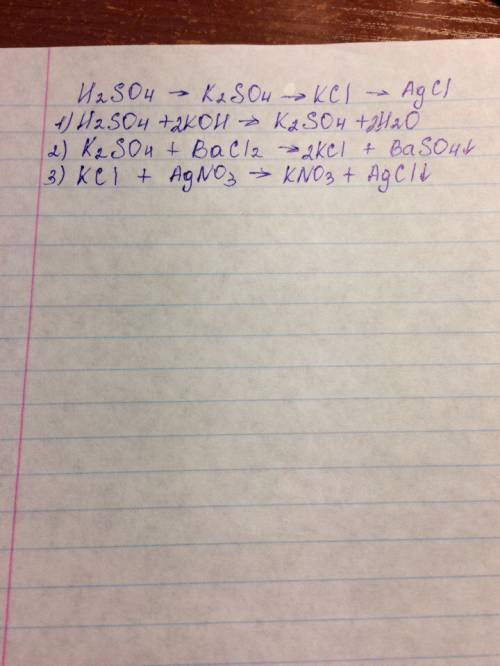 H2SO4 → K2SO4 → KCl → AgCl
1) H2SO4 + 2KOH → K2SO4 + 2H2O
2) K2SO4 + BaCl2 → 2KCl + BaSO4↓
3) KCl + AgNO3 → KNO3 + AgCl↓